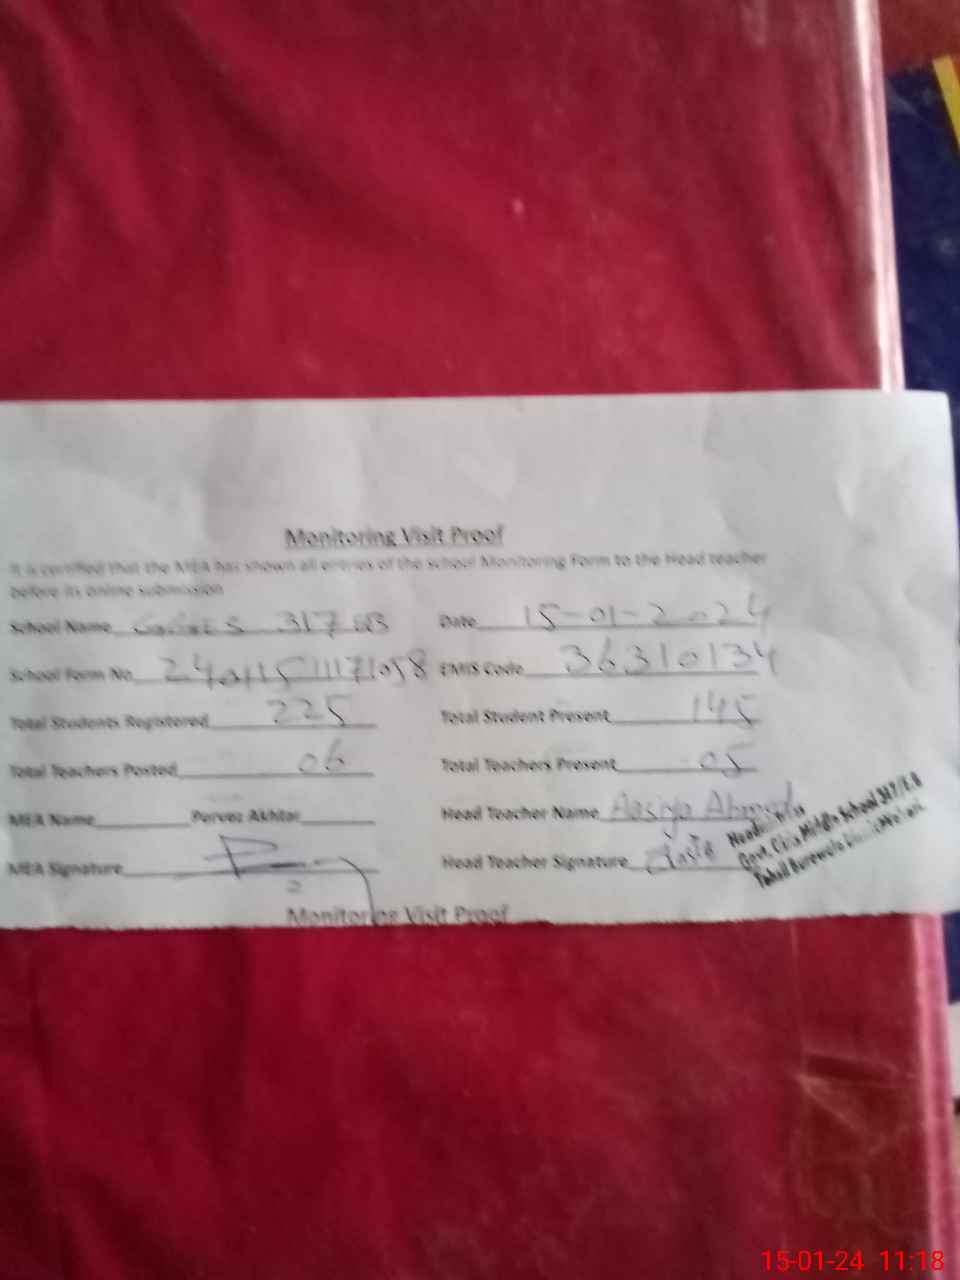 Monitoring Visit Proof
It is certified that the MEA has shown all entries of the school Monitoring Form to the Head teacher
before its online submission
School Name 317 EB Date 15-01-2024
School Form No EMIS Code 36310134
Total Students Registered 225 Total Student Present 145
Total Teachers Posted 06 Total Teachers Present 05
MEA Name Pervez Akhtar Head Teacher Name Aasiya Ahmed
MEA Signature Head Teacher Signature
Govt. Middle School 317/E.B
Tehsil Burewala
Monitoring Visit Proof
15-01-24 11:18